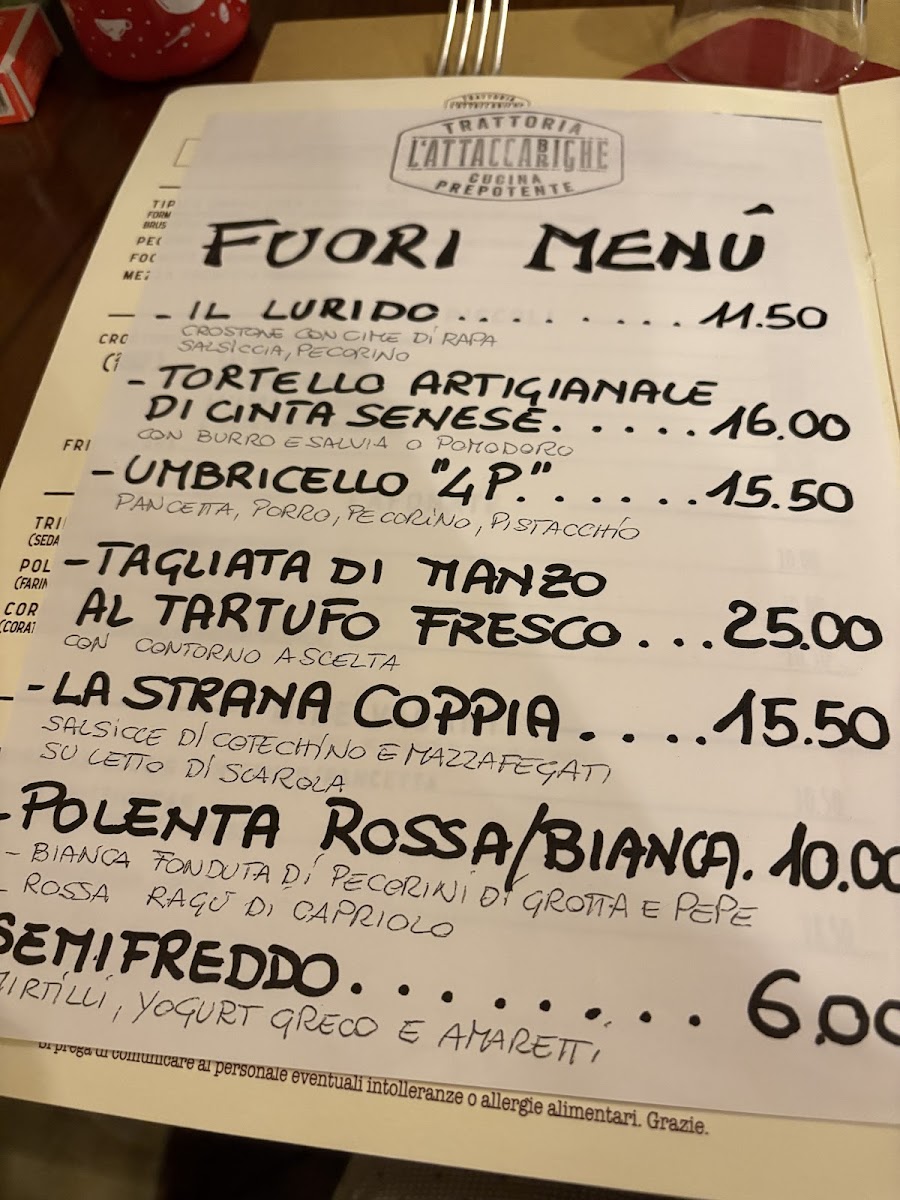 TRATTORIA
L'ATTACCABRIGHE
CUCINA
PREPOTENTE
FUORI MENÚ
- IL LURIDO......... 11.50
CROSTONE CON CIME DI RAPA
SALSICCIA, PECORINO
- TORTELLO ARTIGIANALE
DI CINTA SENESE...... 16.00
CON BURRO E SALVIA O POMODORO
- UMBRICELLO "4P."...... 15.50
PANCETTA, PORRO, PECORINO, PISTACCHIO
- TAGLIATA DI MANZO
AL TARTUFO FRESCO... 25.00
CON CONTORNO A SCELTA
- LA STRANA COPPIA.... 15.50
SALSICCE DI COTECHINO E MAZZAFEGATI
SU LETTO DI SCAROLA
- POLENTA ROSSA/BIANCA. 10.00
- BIANCA FONDUTA DI PECORINI DI GROTTA E PEPE
- ROSSA RAGÚ DI CAPRIOLO
SEMIFREDDO......... 6.00
MIRTILLI, YOGURT GRECO E AMARETTI
Si prega di comunicare al personale eventuali intolleranze o allergie alimentari. Grazie.
TIP
FORM
BRUS
PEC
FOC
MEZ
CRO
FRI
TRI
(SEDA
POL
(FARIN
COR
(CORAT